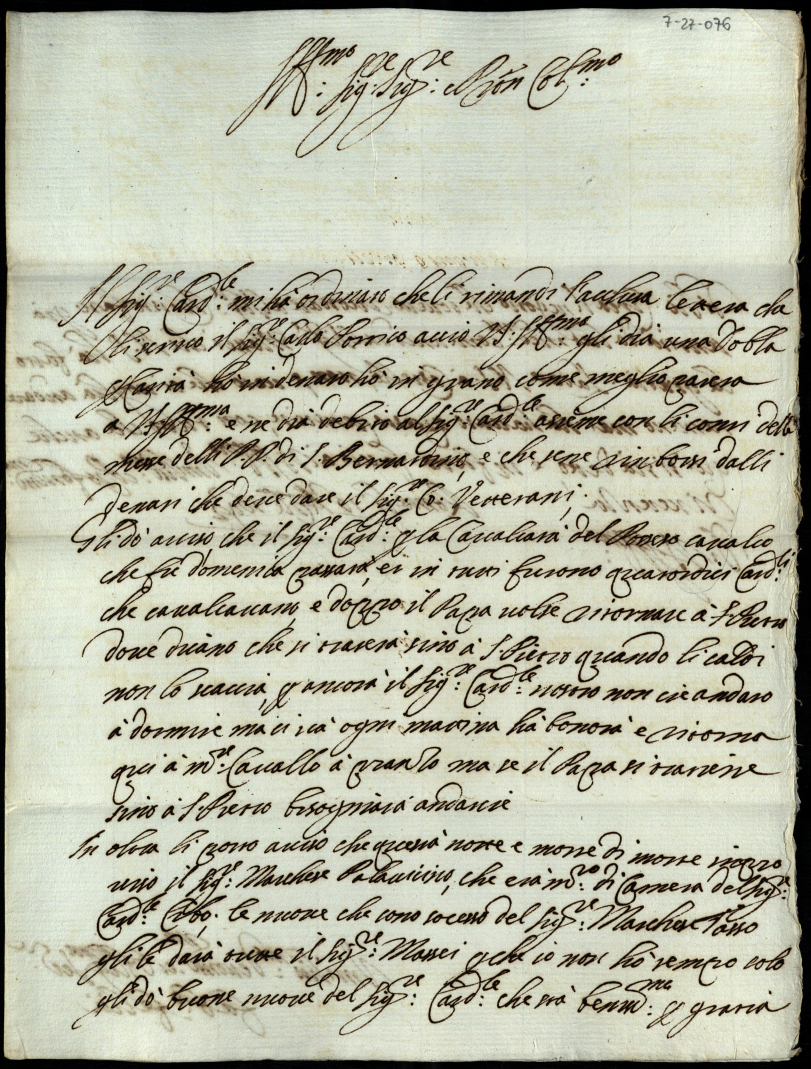 7-27-076
Ill.mo Sig.re Sig.re e Pron Col.mo
Il Sig.re Card.le mi hà ordinato che li rimandi l'acclusa lettera che
li scrive il Sig.re Carlo acciò V.S. Ill.ma gli dia una dobla
ò in denaro hò in grano come meglio parera
a V.S. Ill.ma e ne dia debito al Sig.re Card.le assieme con li conti delle
messe delli PP. di S. Bernardino, e che se ne rinborsi dalli
denari che deve dare il Sig.re Co: Veterani,
Gli dò aviso che il Sig.re Card.le p la Cavalcata del Possesso cavalcò
che fù domenica passata, et in tutti furono quatordici Card.li
che cavalcavano, e doppo il Papa volse ritornare à S. Pietro
dove dicano che si tratera sino à S. Pietro quando li caldi
non lo scaccia, p ancora il Sig.re Card.le nostro non ci è andato
à dormire ma ci và ogni matina hà bonora e ritorna
qui à m.te Cavallo à pranzo ma se il Papa si trattiene
sino à S. Pietro bisogniarà andarcie
In oltra li porto aviso che questa notte e morto di morte
il Sig.re Marchese Palavicino, che era m.ro di Camera del Sig.re
Card.le Cibo. le nuove che sono socesso del Sig.re Marchese Tasso
gli le darà tutte il Sig.re Massei p che io non hò tempo solo
gli dò buone nuove del Sig.re Card.le che stà beniss.mo p gratia